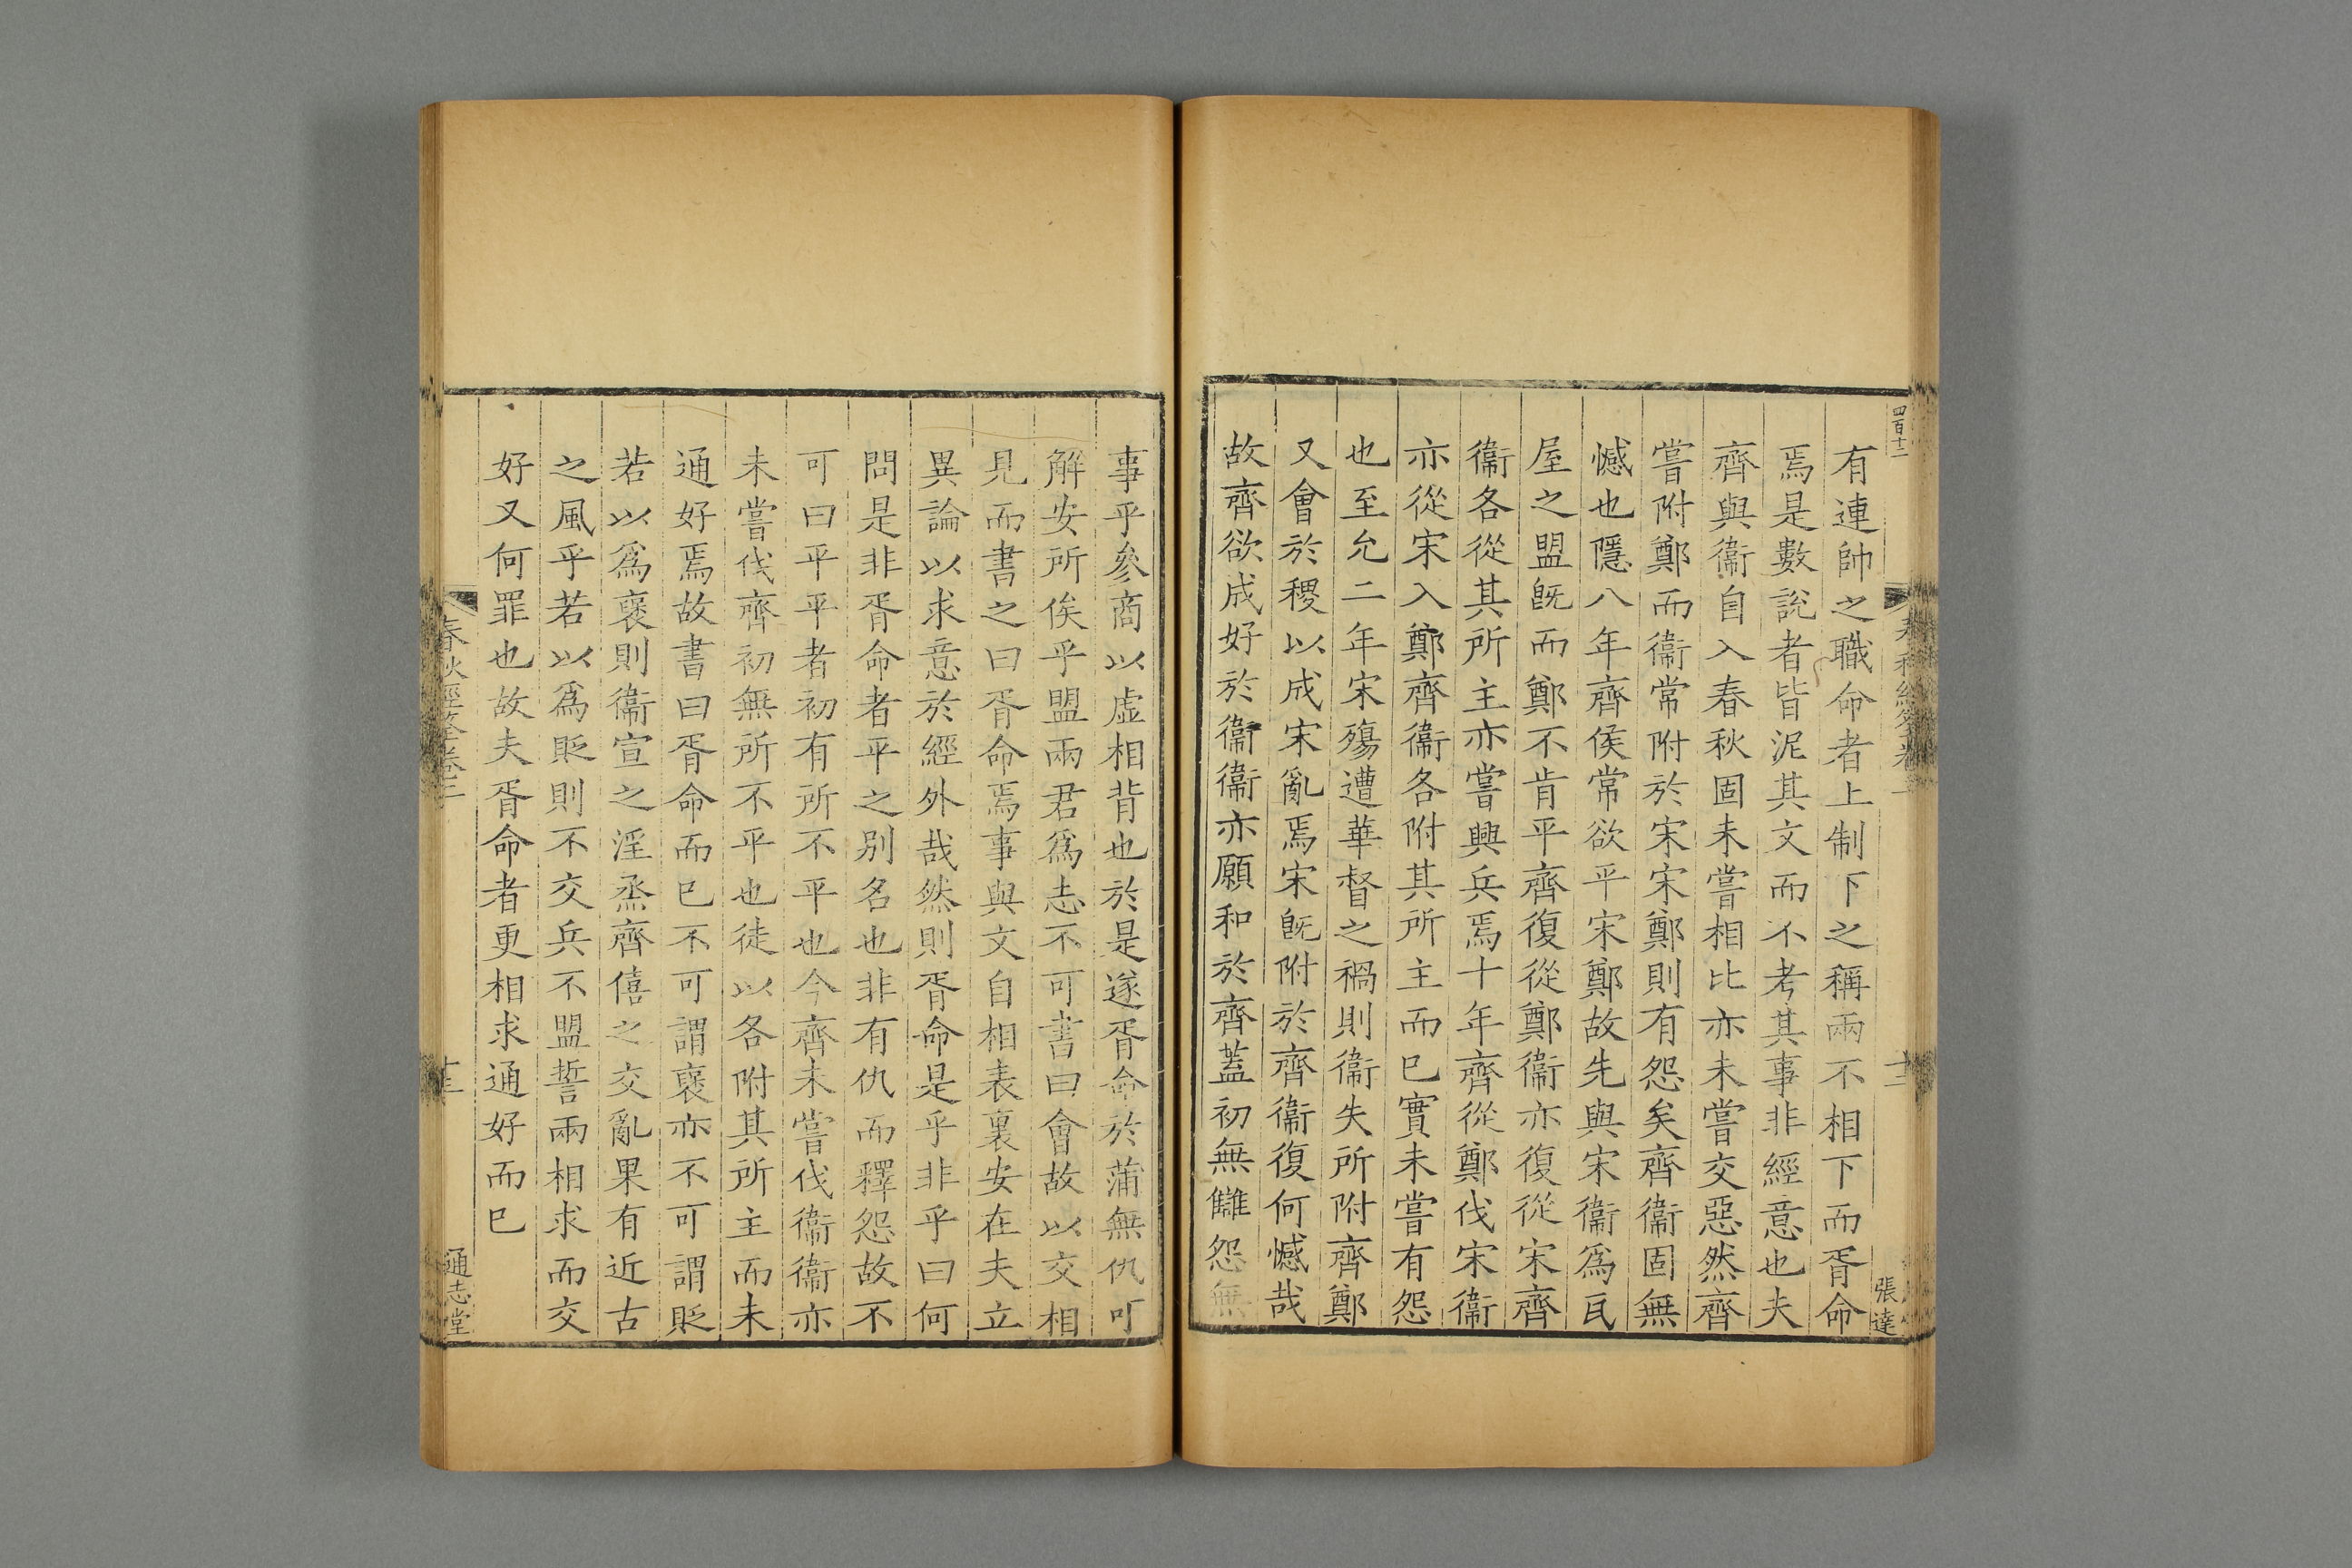 四百十二
有連帥之職命者上制下之稱兩不相下而胥命
焉是數說者皆泥其文而不考其事非經意也夫
齊與衞自入春秋固未嘗相比亦未嘗交惡然齊
嘗附鄭而衞常附於宋宋鄭則有怨矣齊衞固無
憾也隱八年齊侯常欲平宋鄭故先與宋衞爲瓦
屋之盟旣而鄭不肯平齊復從鄭衞亦復從宋齊
衞各從其所主亦嘗興兵焉十年齊從鄭伐宋衞
亦從宋入鄭齊衞各附其所主而已實未嘗有怨
也至允二年宋殤遭華督之禍則衞失所附齊鄭
又會於稷以成宋亂焉宋旣附於齊衞復何憾哉
故齊欲成好於衞衞亦願和於齊蓋初無讎怨無
張達
事乎參商以虛相背也於是遂胥命於蒲無仇可
解安所俟乎盟兩君爲志不可書曰會故以交相
見而書之曰胥命焉事與文自相表裏安在夫立
異論以求意於經外哉然則胥命是乎非乎曰何
問是非胥命者平之別名也非有仇而釋怨故不
可曰平平者初有所不平也今齊未嘗伐衞衞亦
未嘗伐齊初無所不平也徒以各附其所主而未
通好焉故書曰胥命而已不可謂褒亦不可謂貶
若以爲褒則衞宣之淫烝齊僖之交亂果有近古
之風乎若以爲貶則不交兵不盟誓兩相求而交
好又何罪也故夫胥命者更相求通好而已
春秋經筌卷二
十三
通志堂